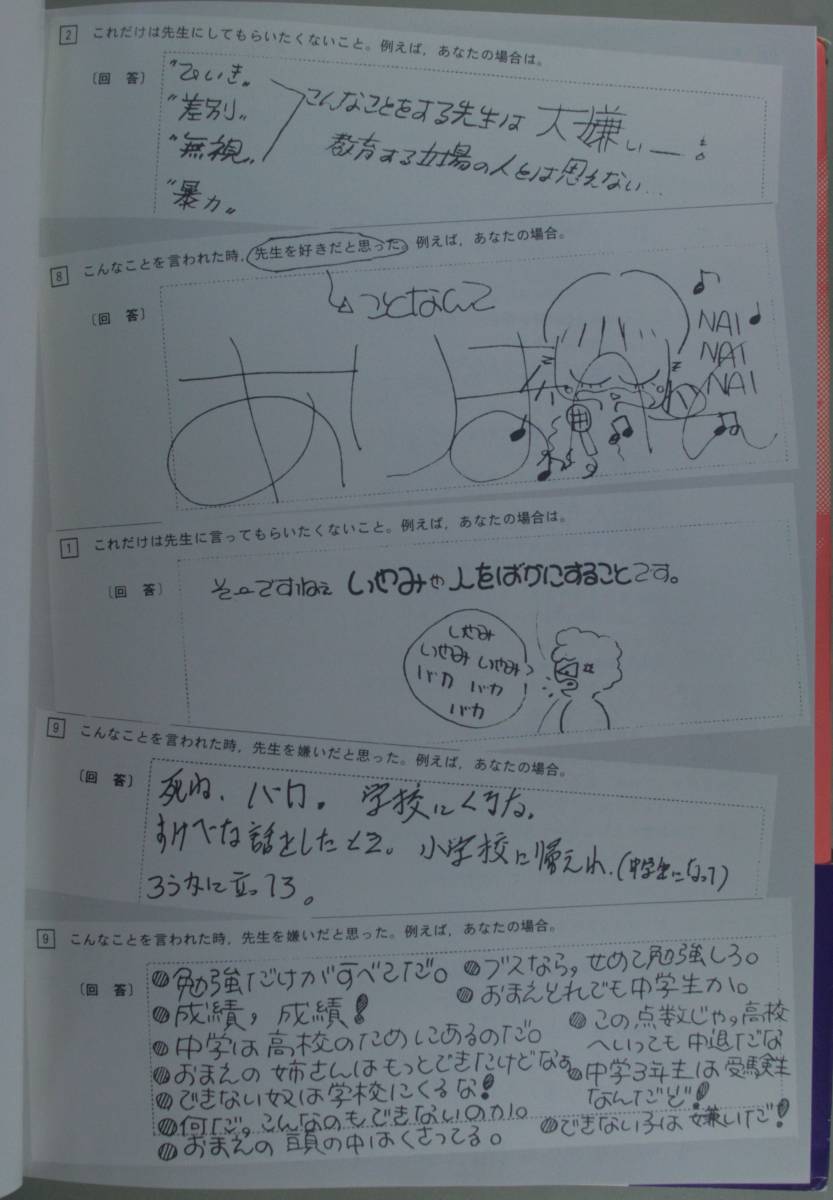 2 これだけは先生にしてもらいたくないこと。例えば，あなたの場合は。
〔回 答〕
"ひいき"
"差別"
"無視"
"暴力"
こんなことをする先生は 大嫌いー!
教育する立場の人とは思えない…
8 こんなことを言われた時，先生を好きだと思った。例えば，あなたの場合。
〔回 答〕
ことなんて
ありま
NAI
NAI
NAI
1 これだけは先生に言ってもらいたくないこと。例えば，あなたの場合は。
〔回 答〕
そーですねぇ いやみや人をばかにすることです。
いやみ
いやみ いやみ
バカ バカ!
バカ
9 こんなことを言われた時，先生を嫌いだと思った。例えば，あなたの場合。
〔回 答〕
死ね、バカ。学校にくるな。
すけべな話をしたとき。小学校に帰えれ、(中学生になって)
ろうかに立ってろ。
9 こんなことを言われた時，先生を嫌いだと思った。例えば，あなたの場合。
〔回 答〕
勉強だけがすべてだ。
成績，成績!
中学は高校のためにあるのだ。
おまえの姉さんはもっとできたけどなぁ
できない奴は学校にくるな!
何だ，こんなのもできないのか。
おまえの頭の中はくさってる。
ブスなら，せめて勉強しろ。
おまえそれでも中学生か。
この点数じゃ，高校
へいっても中退だな
中学3年生は受験生
なんだぞ!
できない子は嫌いだ!